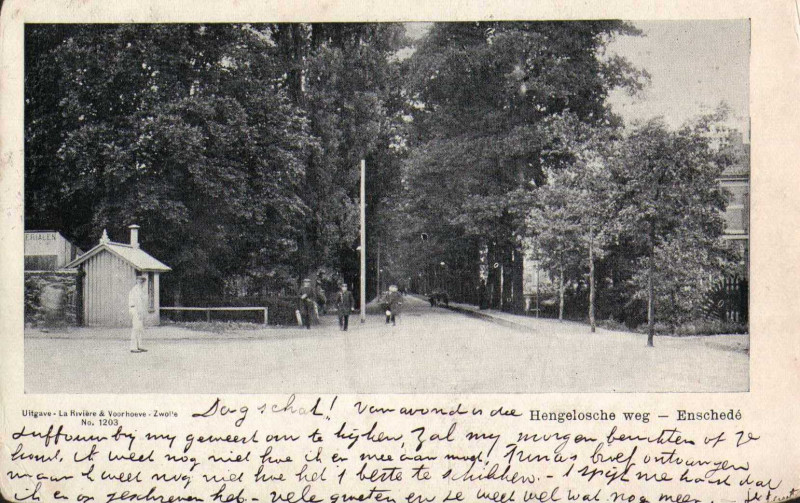 ERIALEN
Uitgave - La Rivière & Voorhoeve - Zwolle
No. 1203
Hengelosche weg — Enschedé
Dag schat! Van avond is die
juffrouw bij my geweest om te kijken, Zal my morgen berichten of ze
komt, ik weet nog niet hoe ik er mee aan moet, Trinas brief ontvangen
maar k weet nog niet hoe het 't beste te schikken. - 't spijt me haast dat
ik er om geschreven heb - vele groeten en je weet wel wat nog meer